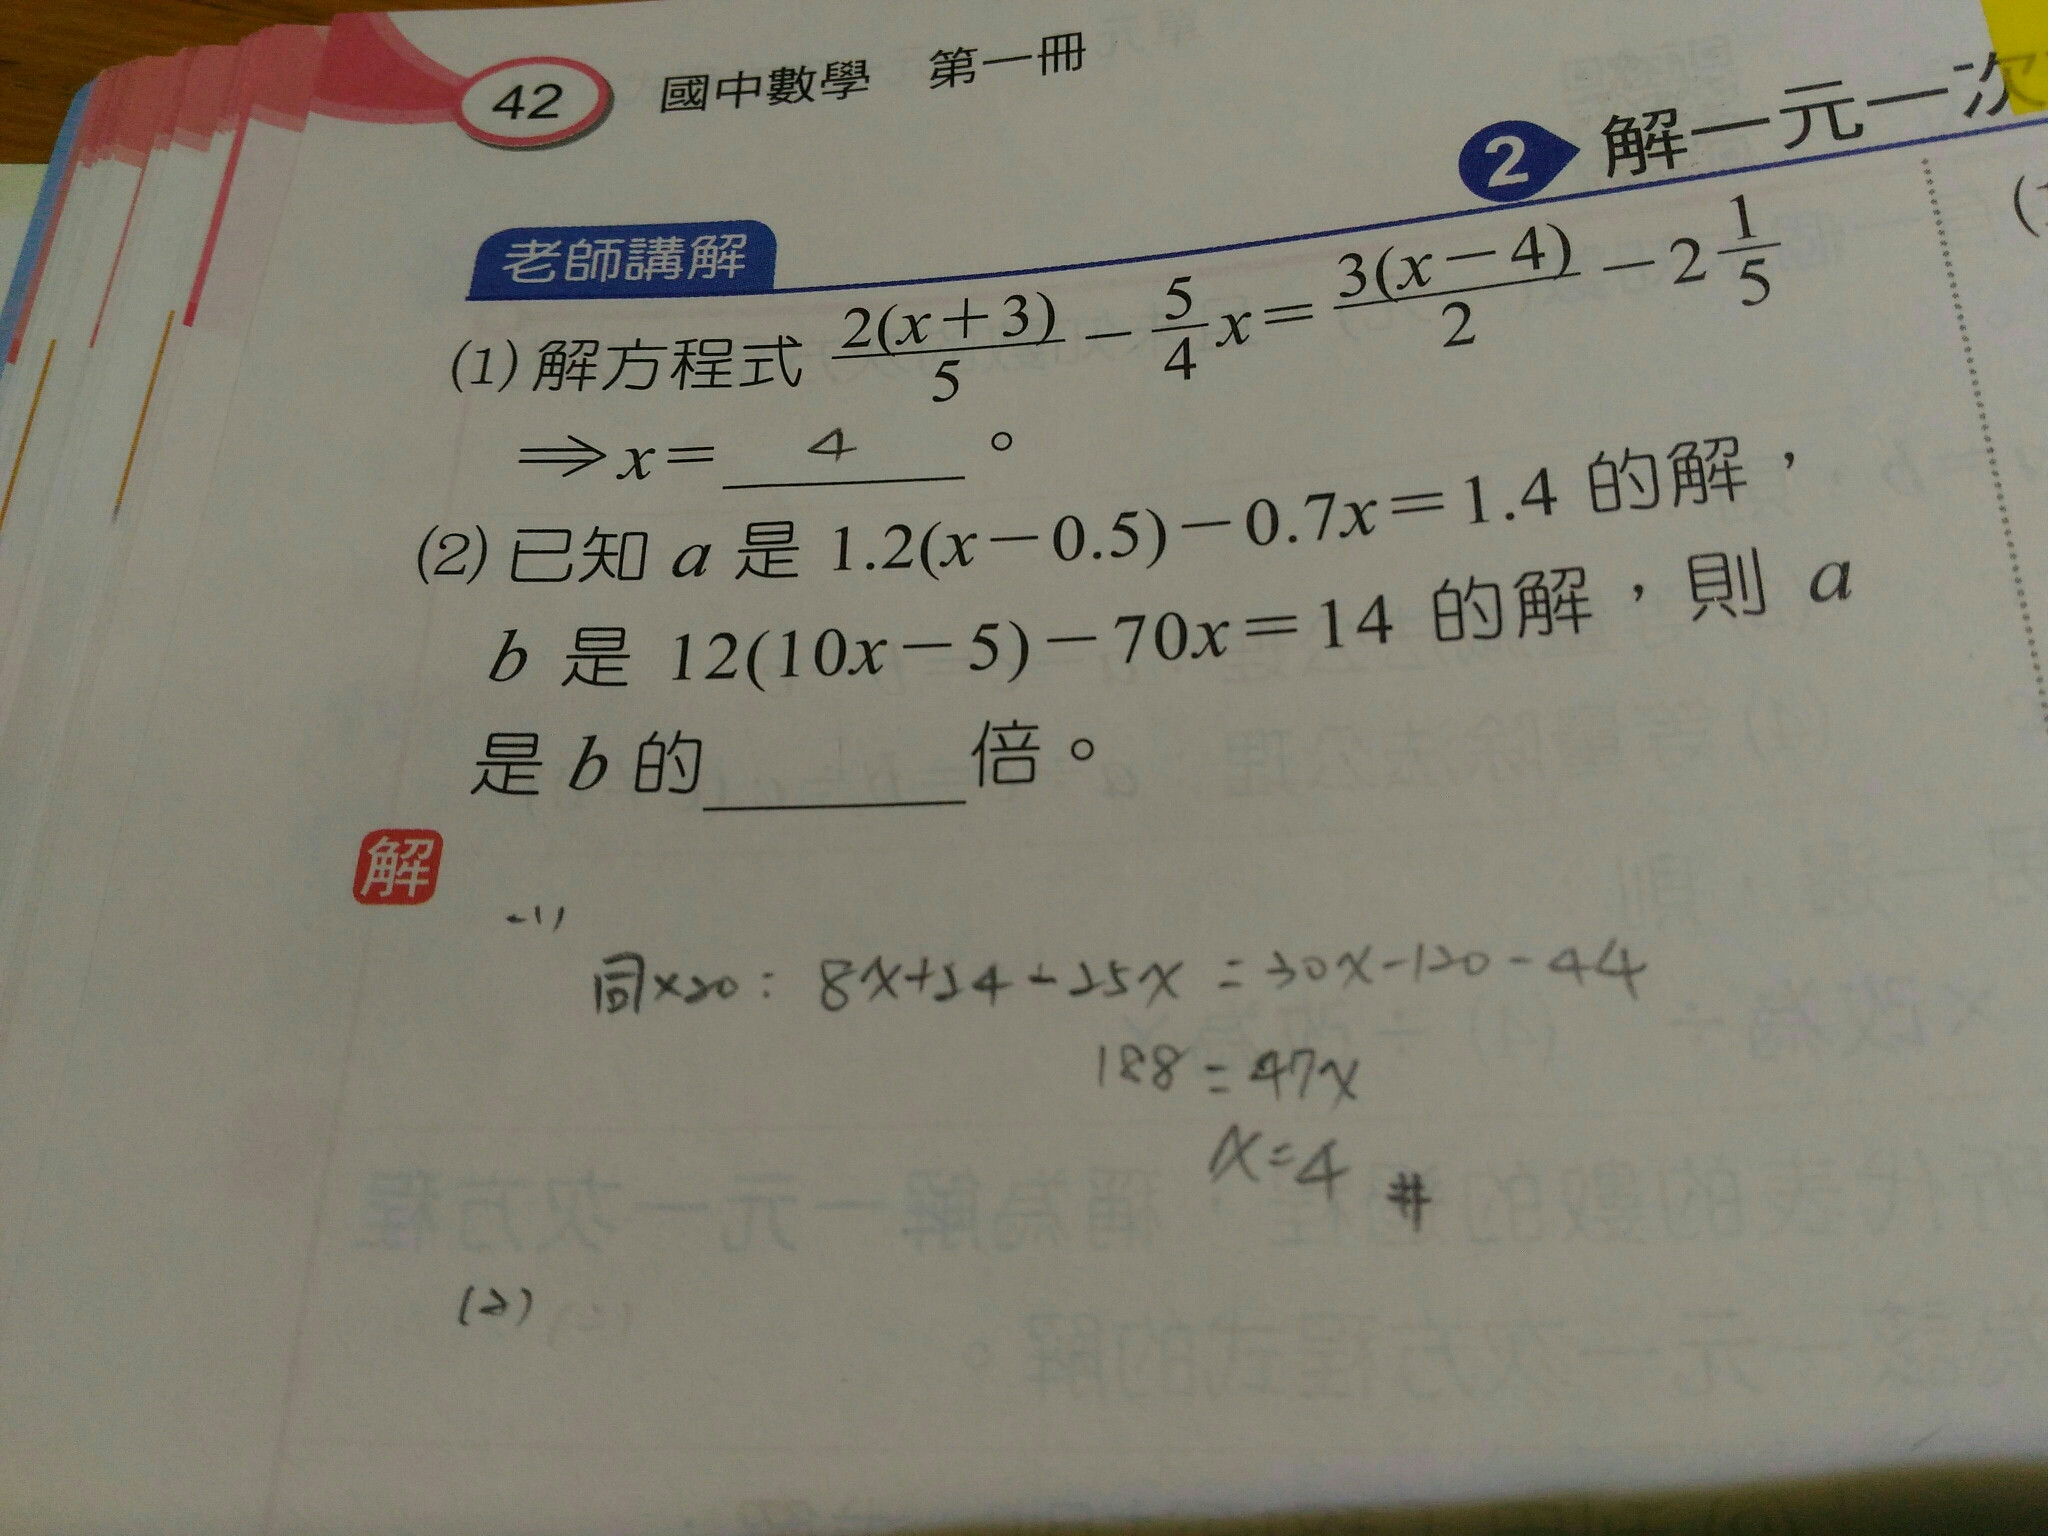 42 國中數學 第一冊
2 解一元一次
老師講解
(1) 解方程式 2(x+3)/5 − 5/4 x = 3(x−4)/2 − 2 1/5
⇒ x = 4 。
(2) 已知 a 是 1.2(x−0.5)−0.7x=1.4 的解，
b 是 12(10x−5)−70x=14 的解，則 a
是 b 的______倍。
解
(1)
同×20: 8x+24-25x = 30x-120-44
188 = 47x
x=4 #
(2)